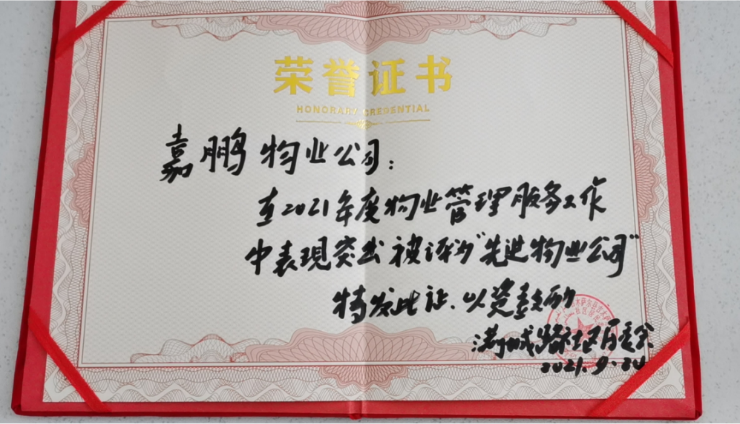 荣誉证书
HONORARY CREDENTIAL
嘉鹏物业公司：
在2021年度物业管理服务工作
中表现突出被评为"先进物业公司"
特发此证、以资鼓励
满城路社区居委会
2021.9.20